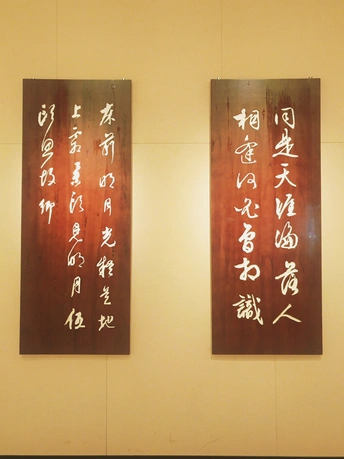 同是天涯淪落人
相逢何必曾相識
床前明月光疑是地
上霜举頭見明月低
頭思故鄉